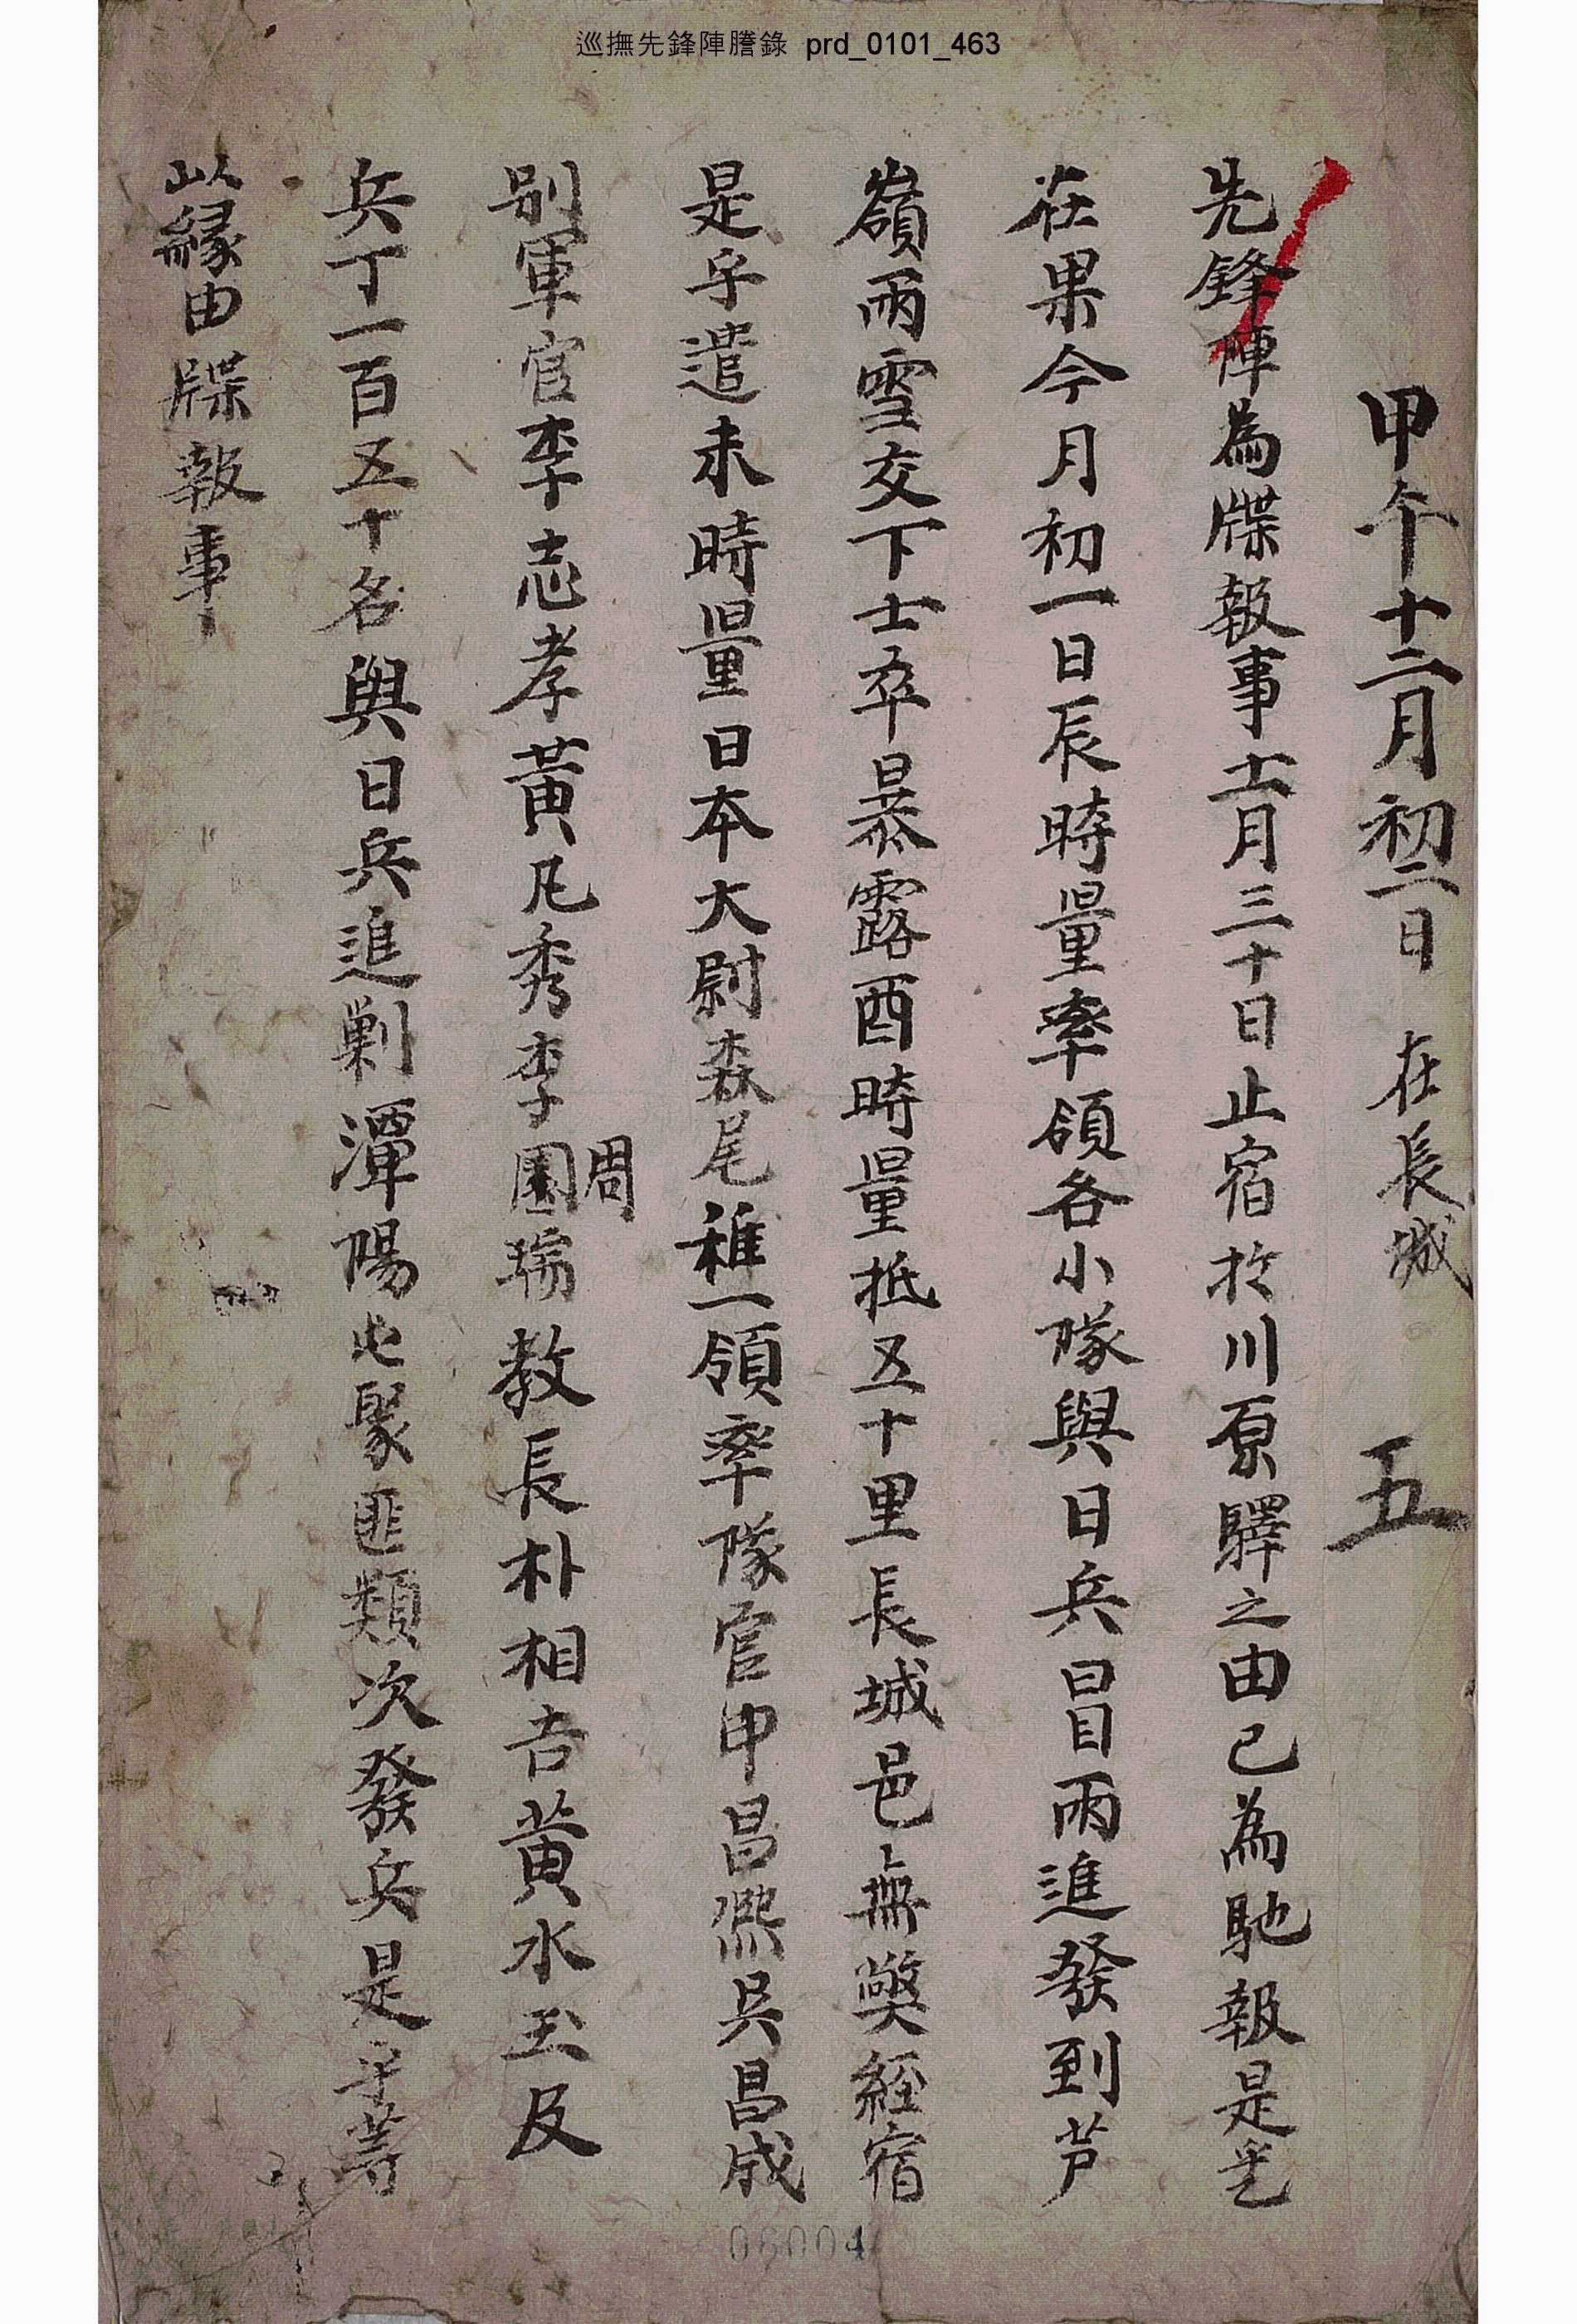 巡撫先鋒陣謄錄 prd_0101_463
甲午十二月初二日 在長城 五
先鋒陣為牒報事十一月三十日止宿於川原驛之由已為馳報是乎
在果今月初一日辰時量率領各小隊與日兵冒雨進發到芦
嶺雨雪交下士卒暴露酉時量抵五十里長城邑無獘経宿
是乎遣未時量日本大尉森尾稚一領率隊官申昌熙吳昌成
别軍官李志孝黃凡秀李周瑞教長朴相吉黃水玉及
周
兵丁一百五十名與日兵進剿潭陽屯聚匪類次發兵是乎等
以緣由牒報事
06004